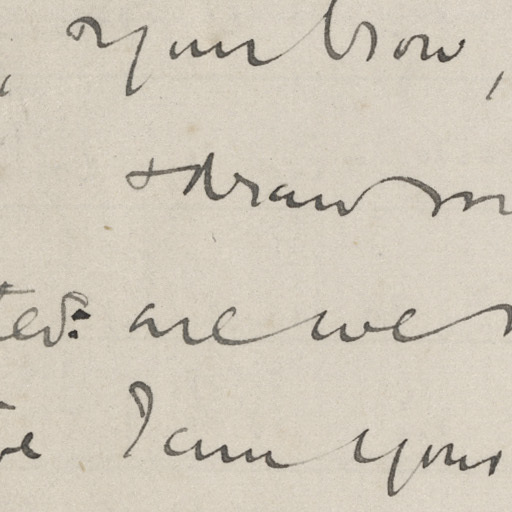 , your brow,
& draw
ted: are we
I am your